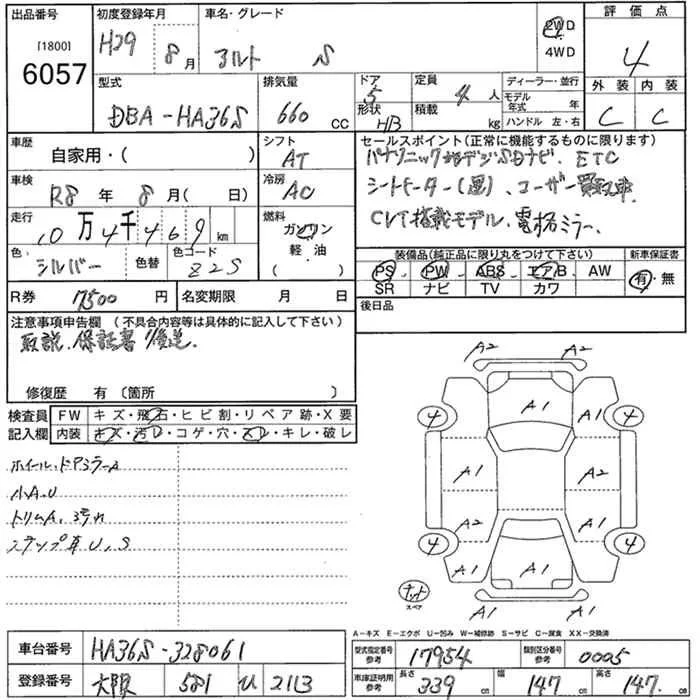 出品番号 初度登録年月 車名・グレード 評価点
[1800]
6057
H29 8月 アルト S 2WD 4
4WD
外装 内装
C C
型式 排気量 ドア 定員 ディーラー・並行
DBA-HA36S 660 CC 5 4人 モデル年式 年
形状 積載
HB kg ハンドル 左・右
車歴 シフト
自家用・( ) AT
セールスポイント(正常に機能するものに限ります)
パナソニック地デジSDナビ、ETC
シートヒーター(運)、ユーザー買取車
CVT搭載モデル、電格ミラー、
車検 冷房
R8年 8月( 日) AC
走行 燃料
10万4千469km ガソリン
軽油
( )
色 色替 色コード
シルバー Z2S
装備品(純正品に限り丸をつけて下さい) 新車保証書
PS PW ABS エアB AW 有・無
SR ナビ TV カワ
R券 17500円 名変期限 月 日
後日品
注意事項申告欄 (不具合内容等は具体的に記入して下さい)
取説、保証書後送、
修復歴 有 (箇所 )
検査員 FW キズ・飛石・ヒビ割・リペア跡・X要
記入欄 内装 キズ・汚レ・コゲ・穴・スレ・キレ・破レ
ホイール、ドアミラーA
小A、U
トリムA、
ステップ U、S
A2 A2
A1
4 A1 A1 4
A1 A2
A2 A1
4 4
A1 A1 A1
スペア
A1 A1
A-キズ E-エクボ U-凹み W-補修跡 S-サビ C-腐食 XX-交換済
車台番号 HA36S-328061
型式指定番号 参考 17954 類別区分番号 参考 0005
登録番号 大阪 581 い 2113
車庫証明用 参考 長さ 339cm 幅 147cm 高さ 147cm